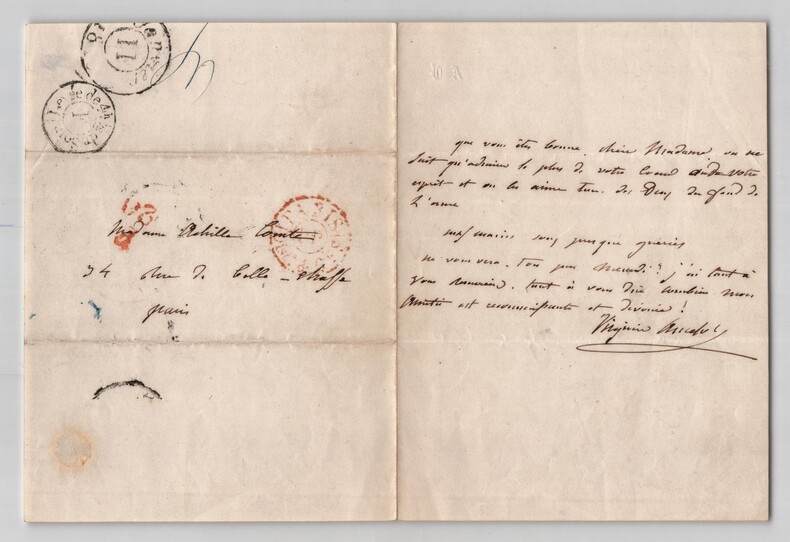 Levée de 4h. du Soir
1
11
Madame Achille Comte
34 rue de Belle-chasse
paris
que vous êtes bonne, chère Madame, on ne
sait qu'admirer le plus de votre Coeur ou de votre
esprit et on les aime tous les Deux du fond de
L'ame
mes mains sont presque guéries
ne vous verai-Ton pas Mercredi? j'ai tant à
vous remercier, tant à vous dire combien mon
Amitié est reconnaissante et dévouée!
Virginie Ancelot